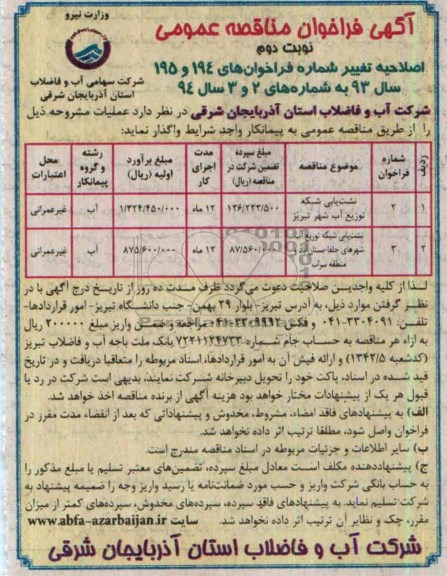 وزارت نیرو
آگهی فراخوان مناقصه عمومی
نوبت دوم
شرکت سهامی آب و فاضلاب
استان آذربایجان شرقی
اصلاحیه تغییر شماره فراخوان‌های ۱۹۴ و ۱۹۵
سال ۹۳ به شماره‌های ۲ و ۳ سال ۹۴
شرکت آب و فاضلاب استان آذربایجان شرقی در نظر دارد عملیات مشروحه ذیل
را از طریق مناقصه عمومی به پیمانکار واجد شرایط واگذار نماید:
ردیف شماره فراخوان موضوع مناقصه مبلغ سپرده تضمین شرکت در مناقصه (ریال) مدت اجرای کار مبلغ برآورد اولیه (ریال) رشته و گروه پیمانکار محل اعتبارات
۱ ۲ نشت‌یابی شبکه توزیع آب شهر تبریز ۱۳۶/۲۲۳/۵۰۰ ۱۲ ماه ۱/۳۲۴/۴۵۰/۰۰۰ آب غیرعمرانی
۲ ۳ نشت‌یابی شبکه توزیع شهرهای جلفا-بستان‌آباد و منطقه سراب ۸۷/۵۶۰/۰۰۰ ۱۲ ماه ۸۷۵/۶۰۰/۰۰۰ آب غیرعمرانی
لذا از کلیه واجدین صلاحیت دعوت می‌گردد ظرف مدت ده روز از تاریخ درج آگهی با در
نظر گرفتن موارد ذیل، به آدرس تبریز- بلوار ۲۹ بهمن- جنب دانشگاه تبریز- امور قراردادها-
تلفن: ۳۳۰۴۰۹۱-۰۴۱ و فکس مراجعه و ضمن واریز مبلغ ۲۰۰۰۰۰ ریال
به ازاء هر مناقصه به حساب جام شماره ۷۲۲۱۱۲۴۷۳۳ بانک ملت باجه آب و فاضلاب تبریز
(کدشعبه ۱۳۴۲/۵) و ارائه فیش آن به امور قراردادها، اسناد مربوطه را متعاقبا دریافت و در تاریخ
قید شده در اسناد، پاکت خود را تحویل دبیرخانه شرکت نمایند، بدیهی است شرکت در رد یا
قبول هر یک از پیشنهادات مختار خواهد بود هزینه آگهی از برنده مناقصه اخذ خواهد شد.
الف) به پیشنهادهای فاقد امضاء، مشروط، مخدوش و پیشنهاداتی که بعد از انقضاء مدت مقرر در
فراخوان واصل شود، مطلقا ترتیب اثر داده نخواهد شد.
ب) سایر اطلاعات و جزئیات مربوطه در اسناد مناقصه مندرج است.
ج) پیشنهاددهنده مکلف است معادل مبلغ سپرده، تضمین‌های معتبر تسلیم یا مبلغ مذکور را
به حساب بانکی شرکت واریز و حسب مورد ضمانت‌نامه یا رسید واریز وجه را ضمیمه پیشنهاد به
شرکت تسلیم نماید. به پیشنهادهای فاقد سپرده، سپرده‌های مخدوش، سپرده‌های کمتر از میزان
مقرر، چک و نظایر آن ترتیب اثر داده نخواهد شد. سایت www.abfa-azarbaijan.ir
شرکت آب و فاضلاب استان آذربایجان شرقی